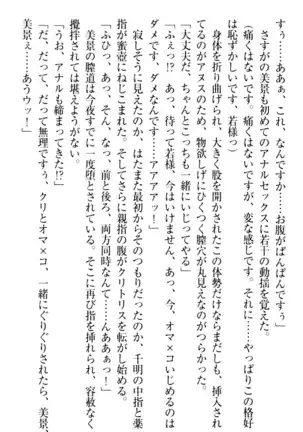 すぅ……ああぁ、これ、なんですか……お腹がぱんぱんですぅ」
さすがの美景も初めてのアナルセックスに若干の動揺を覚えた。
「痛くはないです。痛くはないですが、変な感じです。それに……やっぱりこの格好
は恥ずかしいです、若様っ」
身体を折り曲げられ、大きく股を開かされたこの体勢だけならまだしも、挿入され
てるのがアヌスのため、物欲しげにひくつく膣穴が丸見えなのがつらかった。
「大丈夫だ、ちゃんとこっちも一緒にいじってやる」
「ふぇっ!? あっ、待って若様、今はいけません、あっ、今、オマ×コいじめるのは
ダメです、ダメなんです……アアアァ!」
寂しそうに見えたのか、はたまた最初からそのつもりだったのか、千明の中指と薬
指が蜜壺にねじこまれた。そしてさらに親指の腹がクリトリスを転がし始める。
「ふひっ、あっ、そん、なっ、前と後ろ、両方同時なんて……んああぁっ!」
美景の膣道は今夜すでに一度堕とされている。そこに再び指を挿れられ、容赦なく
攪拌されては堪えようがない。
「うお、アナルも締まってきた!?」
「だ、だって、だって無理ですぅ、クリとオマ×コ、一緒にぐりぐりされたら、美景、
美景ェ……あうウッ!」